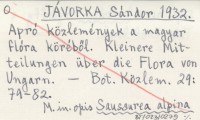 JÁVORKA Sándor 1932.
Apró közlemények a magyar
flóra köréből. Kleinere Mit-
teilungen über die Flora von
Ungarn. — Bot. Közlem. 29:
79-82.
M. in. opis Saussurea alpina